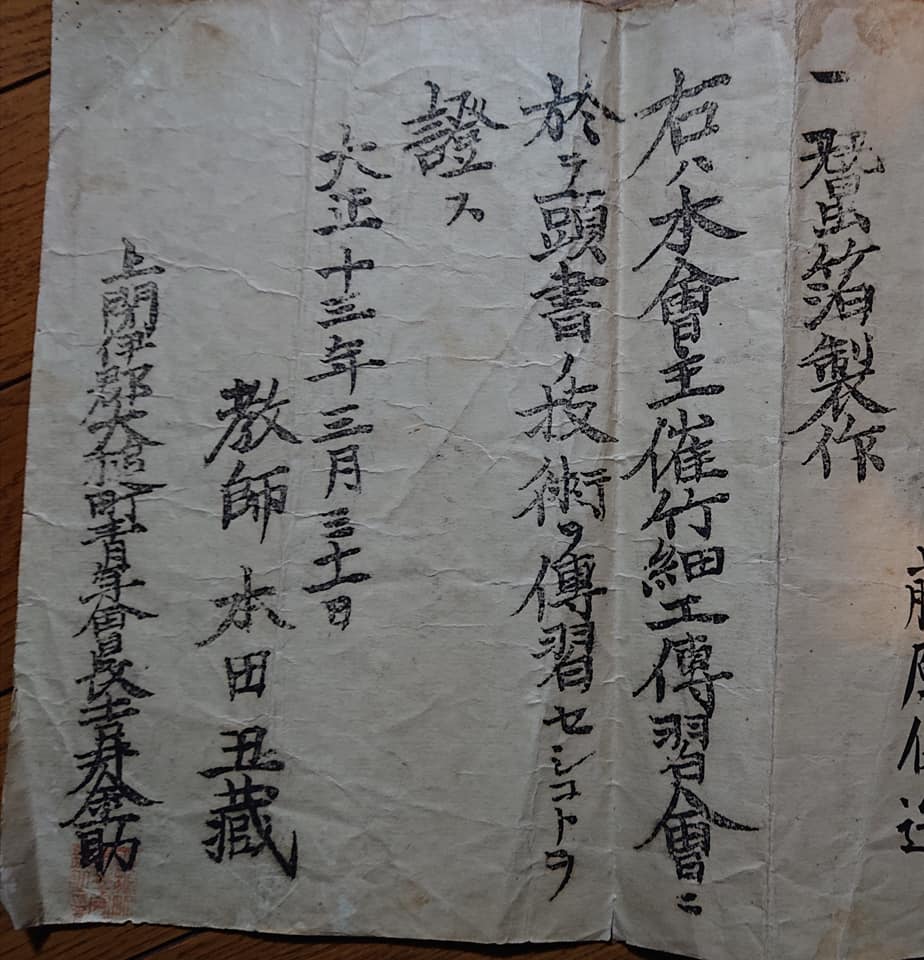 藤原
一 蠶箔製作
右ハ本會主催竹細工傳習會ニ
於テ頭書ノ技術ヲ傳習セシコトヲ
證ス
大正十三年三月三十一日
教師 本田丑藏
上閉伊郡大槌町青年會長 金助